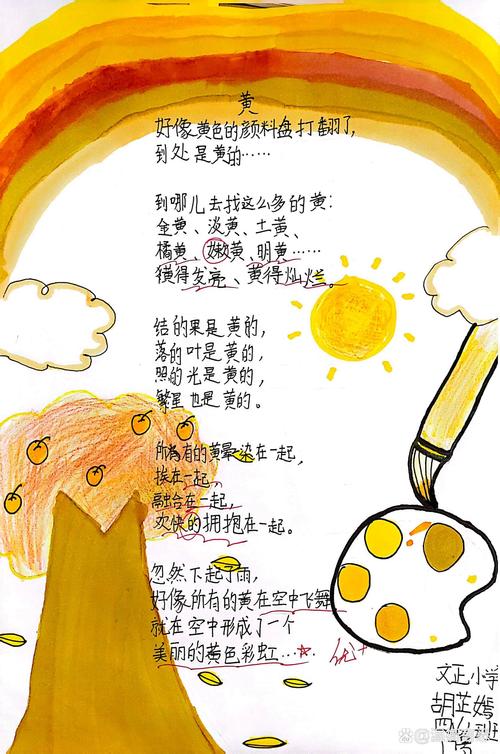 黄
好像黄色的颜料盘打翻了,
到处是黄的……
到哪儿去找这么多的黄:
金黄、淡黄、土黄、
橘黄、嫩黄、明黄……
黄得发亮、黄得灿烂。
结的果是黄的,
落的叶是黄的,
照的光是黄的,
繁星也是黄的。
所有的黄晕染在一起,
挨在一起,
融合在一起,
欢快的拥抱在一起。
忽然下起了雨,
好像所有的黄在空中飞舞
就在空中形成了一个
美丽的黄色彩虹……
优+
文正小学
胡芷嫣